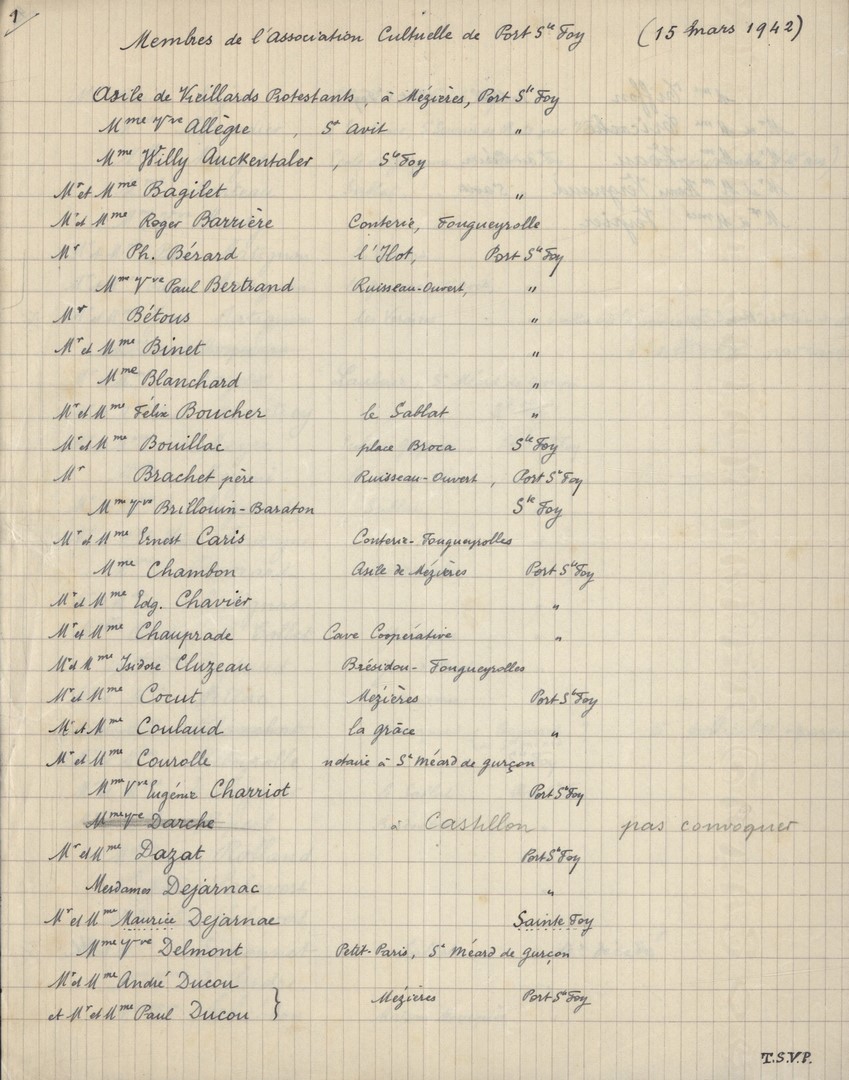 1
Membres de l'Association Cultuelle de Port Ste Foy (15 Mars 1942)
Asile de Vieillards Protestants, à Mézières, Port Ste Foy
Mme Vve Allègre, St Avit "
Mme Willy Auckentaler, Ste Foy
Mr et Mme Bagilet "
Mr et Mme Roger Barrière Conterie, Fougueyrolle
Mr Ph. Bérard l'Ilot, Port Ste Foy
Mme Vve Paul Bertrand Ruisseau-Ouvert, "
Mr Bétous "
Mr et Mme Binet "
Mme Blanchard "
Mr et Mme Félix Boucher le Sablat "
Mr et Mme Bouillac place Broca Ste Foy
Mr Brachet père Ruisseau-Ouvert, Port Ste Foy
Mme Vve Brillouin-Baraton Ste Foy
Mr et Mme Ernest Caris Conterie-Fougueyrolles
Mme Chambon Asile de Mézières Port Ste Foy
Mr et Mme Edg. Chavier "
Mr et Mme Chauprade Cave Coopérative "
Mr et Mme Isidore Cluzeau Brésidou-Fougueyrolles
Mr et Mme Cocut Mézières Port Ste Foy
Mr et Mme Coulaud la grâce "
Mr et Mme Courolle notaire à St Méard de gurçon
Mme Vve Eugénie Charriot Port Ste Foy
Mme Vve Darche à Castillon pas convoquer
Mr et Mme Dazat Port Ste Foy
Mesdames Dejarnac "
Mr et Mme Maurice Dejarnac Sainte Foy
Mme Vve Delmont Petit-Paris, St Méard de gurçon
Mr et Mme André Ducou
et Mr et Mme Paul Ducou } Mézières Port Ste Foy
T.S.V.P.